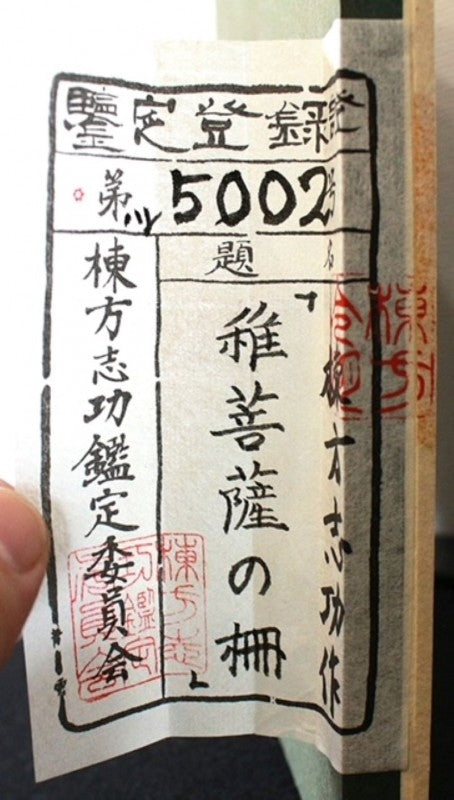 鑒定登録證
第5002号
題名
棟方志功作
「稚菩薩の柵」
棟方志功鑑定委員会
棟方志
功鑑定
委員会
棟方